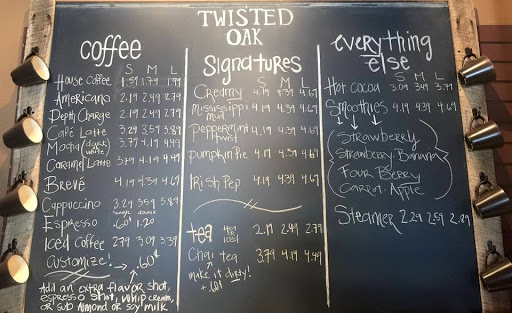 TWISTED
OAK
coffee
S M L
House Coffee 1.59 1.79 1.99
Americano 2.19 2.49 2.79
Depth Charge 2.19 2.49 2.79
Café Latte 3.29 3.59 3.89
Mocha (dark/white) 3.79 4.19 4.49
Caramel Latte 3.79 4.19 4.49
Brevé 4.19 4.39 4.69
Cappuccino 3.29 3.59 3.89
Espresso single .60 double 1.20
Iced Coffee 2.79 3.09 3.39
Customize! .60
Add an extra flavor shot,
espresso shot, whip cream,
or sub Almond or soy milk
Signatures
S M L
Creamy 4.19 4.39 4.69
Mississippi mud 4.19 4.39 4.69
Peppermint twist 4.19 4.39 4.69
Pumpkin Pie 4.19 4.39 4.69
Irish Pep 4.19 4.39 4.69
tea hot or iced 2.19 2.49 2.79
Chai tea 3.79 4.19 4.49
make it dirty!
+ .60
everything
else
S M L
Hot cocoa 3.09 3.49 3.79
Smoothies 4.19 4.39 4.69
Strawberry
Strawberry-Banana
Four Berry
Carrot-Apple
Steamer 2.29 2.59 2.89